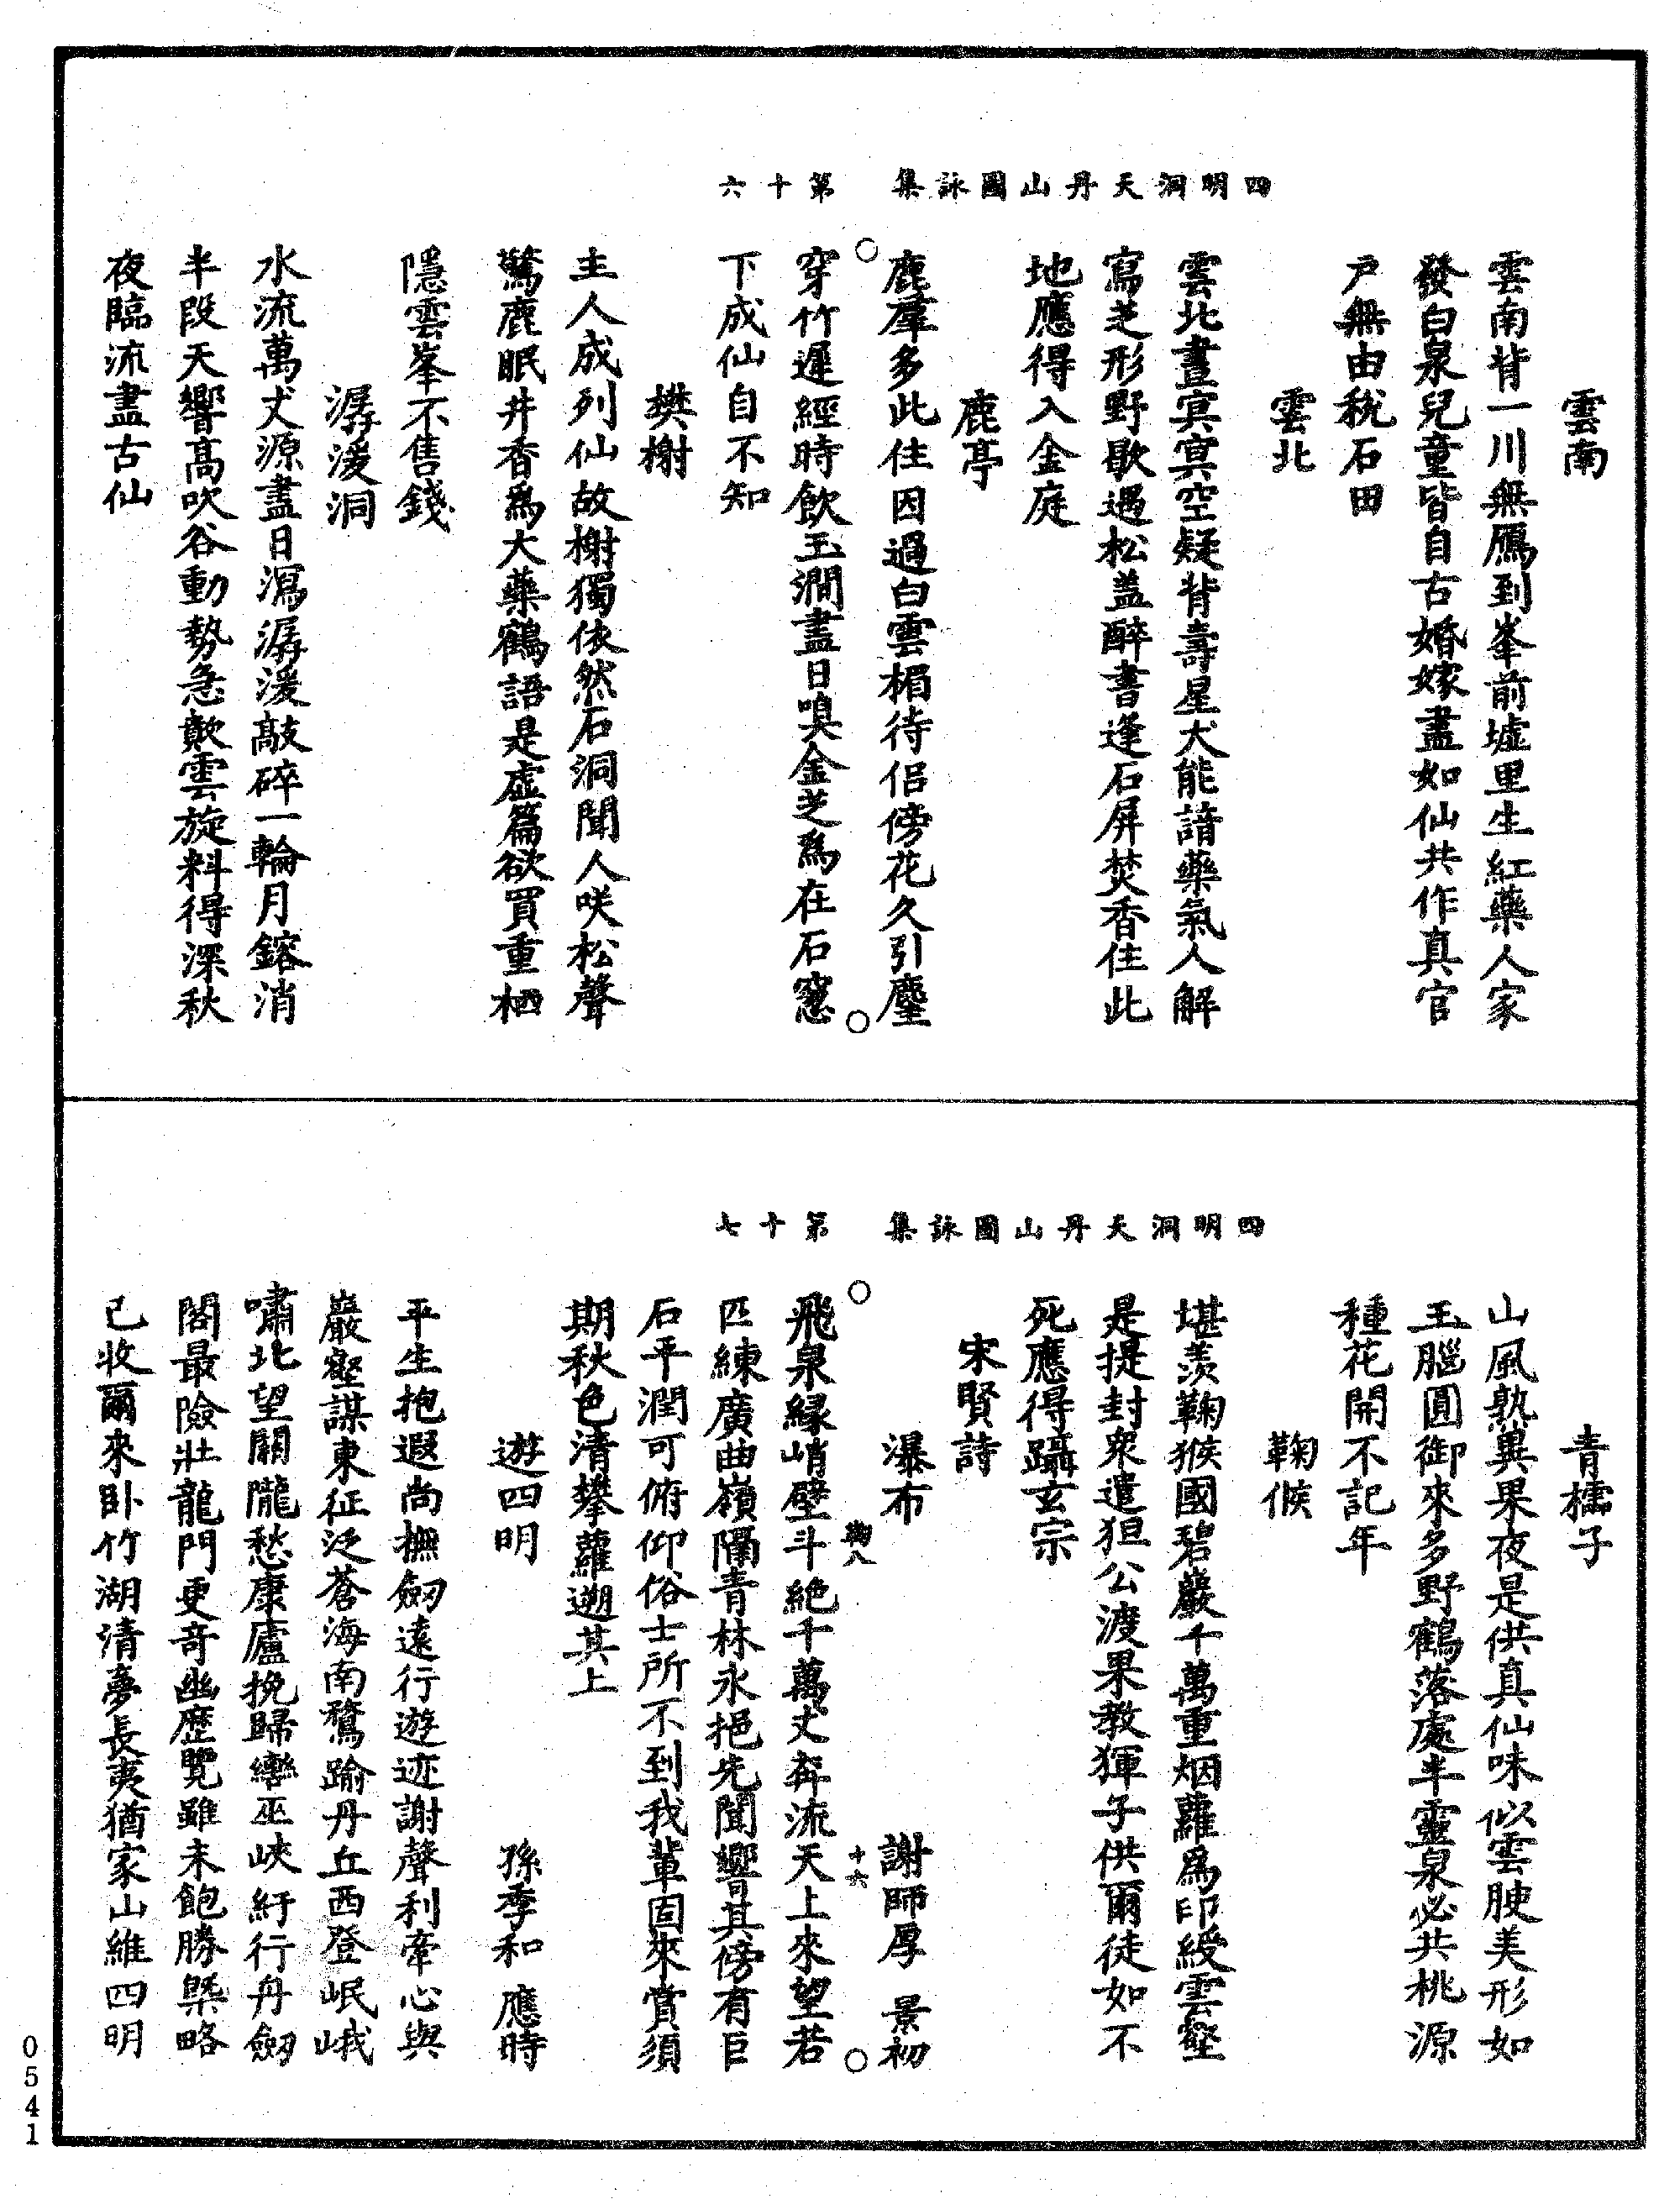 四明洞天丹山圖詠集　第十六
雲南
雲南背一川無鴈到峯前墟里生紅藥人家
發白泉兒童皆自古婚嫁盡如仙共作真官
戶無由稅石田
雲北
雲北晝冥冥空疑背壽星犬能諳藥氣人解
寫芝形野歇遇松盖醉書逢石屏焚香住此
地應得入金庭
鹿亭
鹿羣多此住因過白雲楣待侣傍花久引麈
穿竹遲經時飲玉澗盡日嗅金芝爲在石窻
下成仙自不知
樊榭
主人成列仙故榭獨依然石洞聞人咲松聲
驚鹿眠井香爲大藥鶴語是虛篇欲買重栖
隱雲峯不售錢
潺湲洞
水流萬丈源盡日瀉潺湲敲碎一輪月鎔消
半段天響高吹谷動勢急歕雲旋料得深秋
夜臨流盡古仙
四明洞天丹山圖詠集　第十七
青櫺子
山風熟異果夜是供真仙味似雲腴美形如
玉腦圓御來多野鶴落處半靈泉必共桃源
種花開不記年
鞠侯
堪羨鞠猴國碧巖千萬重烟蘿爲印綬雲壑
是提封衆遣狙公渡果教猚子供爾徒如不
死應得躡玄宗
宋賢詩
瀑布　謝師厚　景初
鞠八　十六
飛泉緣峭壁斗絶千萬丈奔流天上來望若
匹練廣曲嶺隔青林永挹先聞響其傍有巨
石平潤可俯仰俗士所不到我輩固來賞須
期秋色清攀蘿遡其上
遊四明　孫季和　應時
平生抱遐尚撫劒遠行遊迹謝聲利牽心與
巖壑謀東征泛蒼海南騖踰丹丘西登岷峨
嘯北望關隴愁康廬挽歸轡巫峽紆行舟劒
閣最險壯龍門更奇幽歷覽雖未飽勝槩略
已收爾來卧竹湖清夢長夷猶家山維四明
0541